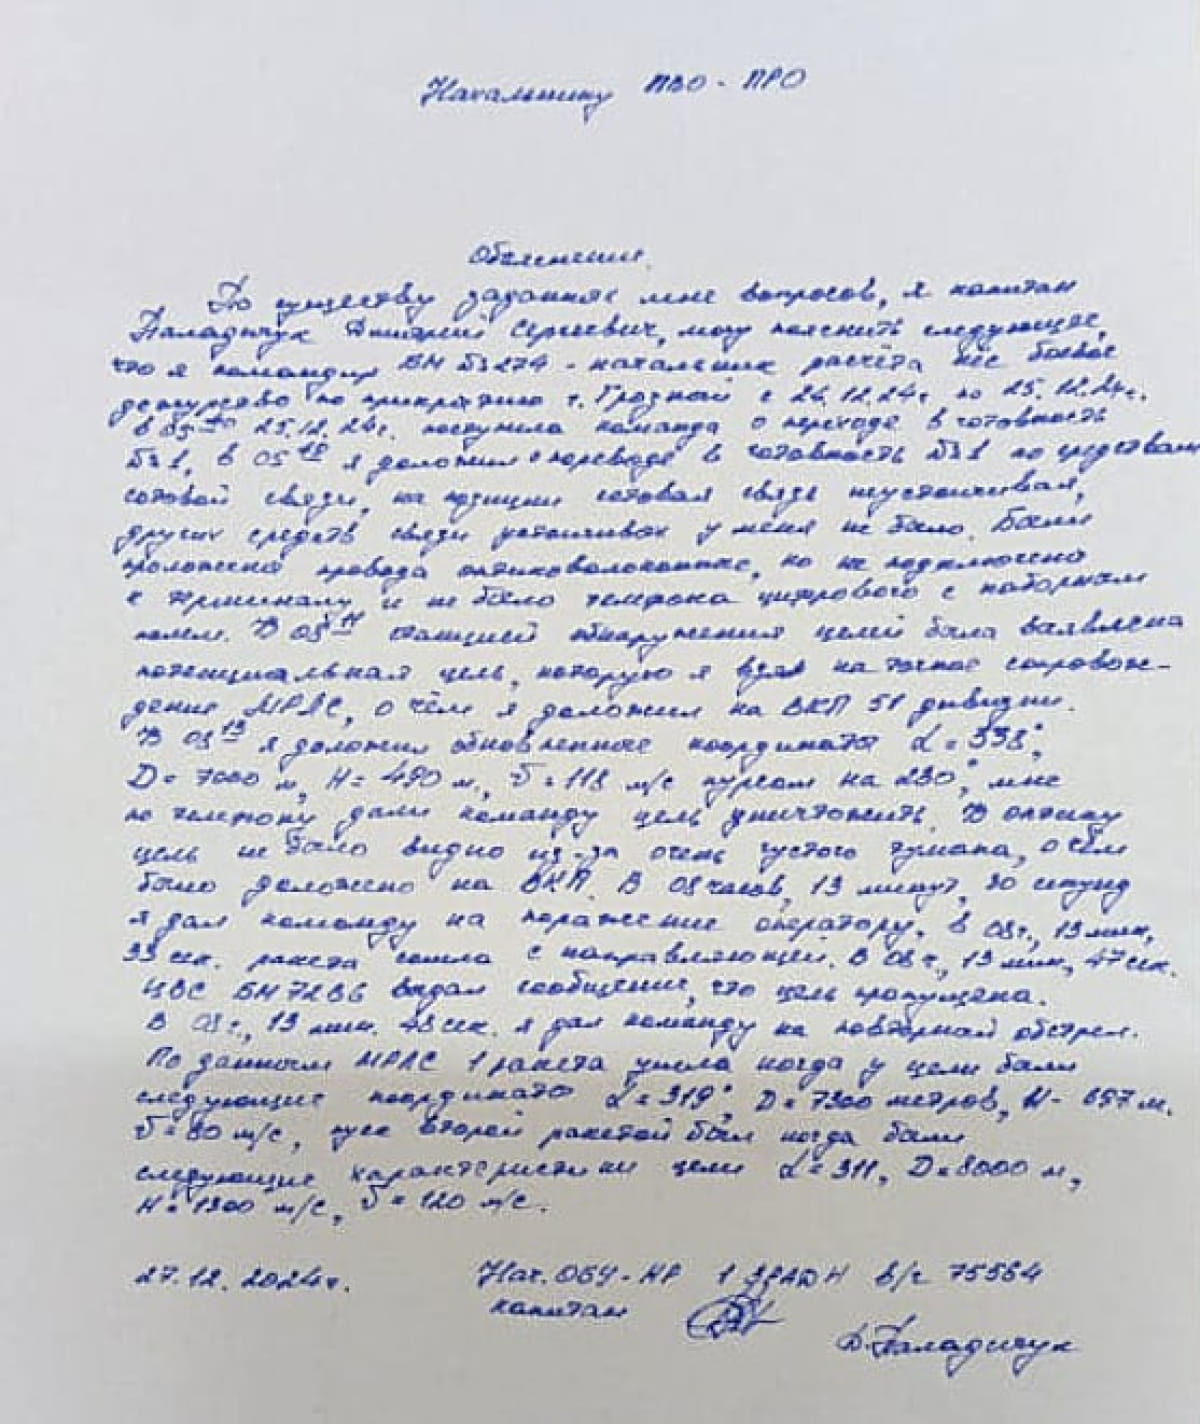 Начальнику ПВО-ПРО
Объяснение.
По существу заданных мне вопросов, я капитан
Паладичук Дмитрий Сергеевич, могу пояснить следующее,
что я командир БМ №274 - начальник расчёта нёс боевое
дежурство по прикрытию г. Грозный с 24.12.24г по 25.12.24г.
в 05 25.12.24г. поступила команда о переходе в готовность
№1, в 05 я доложил о переводе в готовность №1 по средствам
сотовой связи, на позиции сотовая связь неустойчивая,
других средств связи устойчивых у меня не было. Были
проложены провода оптиковолоконные, но не подключено
к терминалу и не было телефона цифрового с наборным
полем. В 08 станцией обнаружения целей была заявлена
потенциальная цель, которую я взял на точное сопровож-
дение МРЛС, о чём я доложил на ВКП 51 дивизии.
В 08 13 я доложил обновленные координаты α = 338°,
D = 7000 м, H = 490 м, v = 118 м/с курсом на 230°, мне
по телефону дали команду цель уничтожить. В оптику
цель не было видно из-за очень густого тумана, о чём
было доложено на ВКП. В 08 часов, 13 минут, 30 секунд
я дал команду на поражение оператору. в 08ч., 13 мин,
33 сек. ракета сошла с направляющей. В 08ч., 13 мин, 47 сек.
ЦВС БМ 72В6 выдал сообщение, что цель пропущена.
В 08ч., 13 мин. 48 сек. я дал команду на повторный обстрел.
По данным МРЛС 1 ракета ушла когда у цели были
следующие координаты α = 319°, D = 7300 метров, H- 657 м.
v = 80 м/с, пуск второй ракетой был когда были
следующие характеристики цели α = 311, D = 8000 м,
H = 1300 м/с, v = 120 м/с.
27.12.2024г. Нач. ОБУ-НР 1 ЗРАДН в/ч 75564
капитан
Д. Паладичук